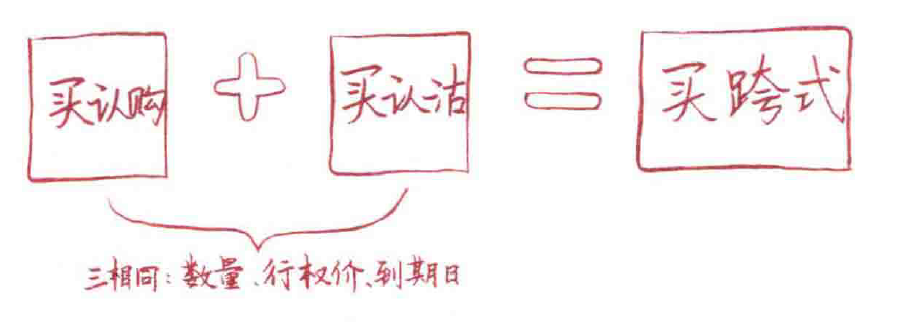 买认购 + 买认沽 = 买跨式
三相同：数量、行权价、到期日